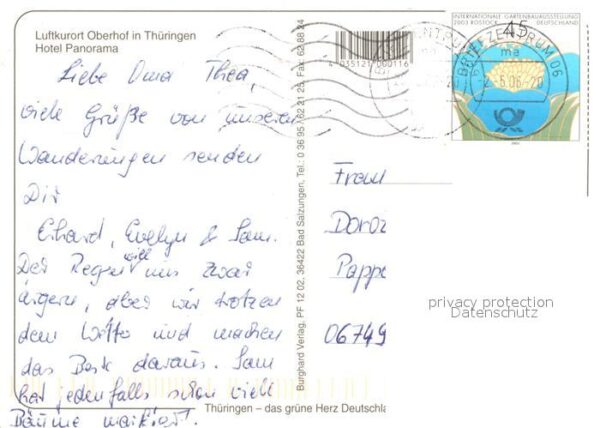 Luftkurort Oberhof in Thüringen
Hotel Panorama
Liebe Oma Thea,
viele Grüße von unseren
Wanderungen senden
Dir
Erhard, Evelyn & Sam.
Der Regen will uns zwar
ärgern, aber wir trotzen
dem Wetter und machen
das Beste daraus. Sam
hat jedenfalls schon viele
Bäume markiert.
Thüringen – das grüne Herz Deutschla
Burghard Verlag, PF 12 02, 36422 Bad Salzungen, Tel.: 0 36 95 / 62 21 25, Fax: 62 88 24
4 035121 000116
INTERNATIONALE GARTENBAUAUSSTELLUNG
2003 ROSTOCK DEUTSCHLAND
45
BRIEFZENTRUM 06
ma
Frau
Doro
Pappe
06749
privacy protection
Datenschutz